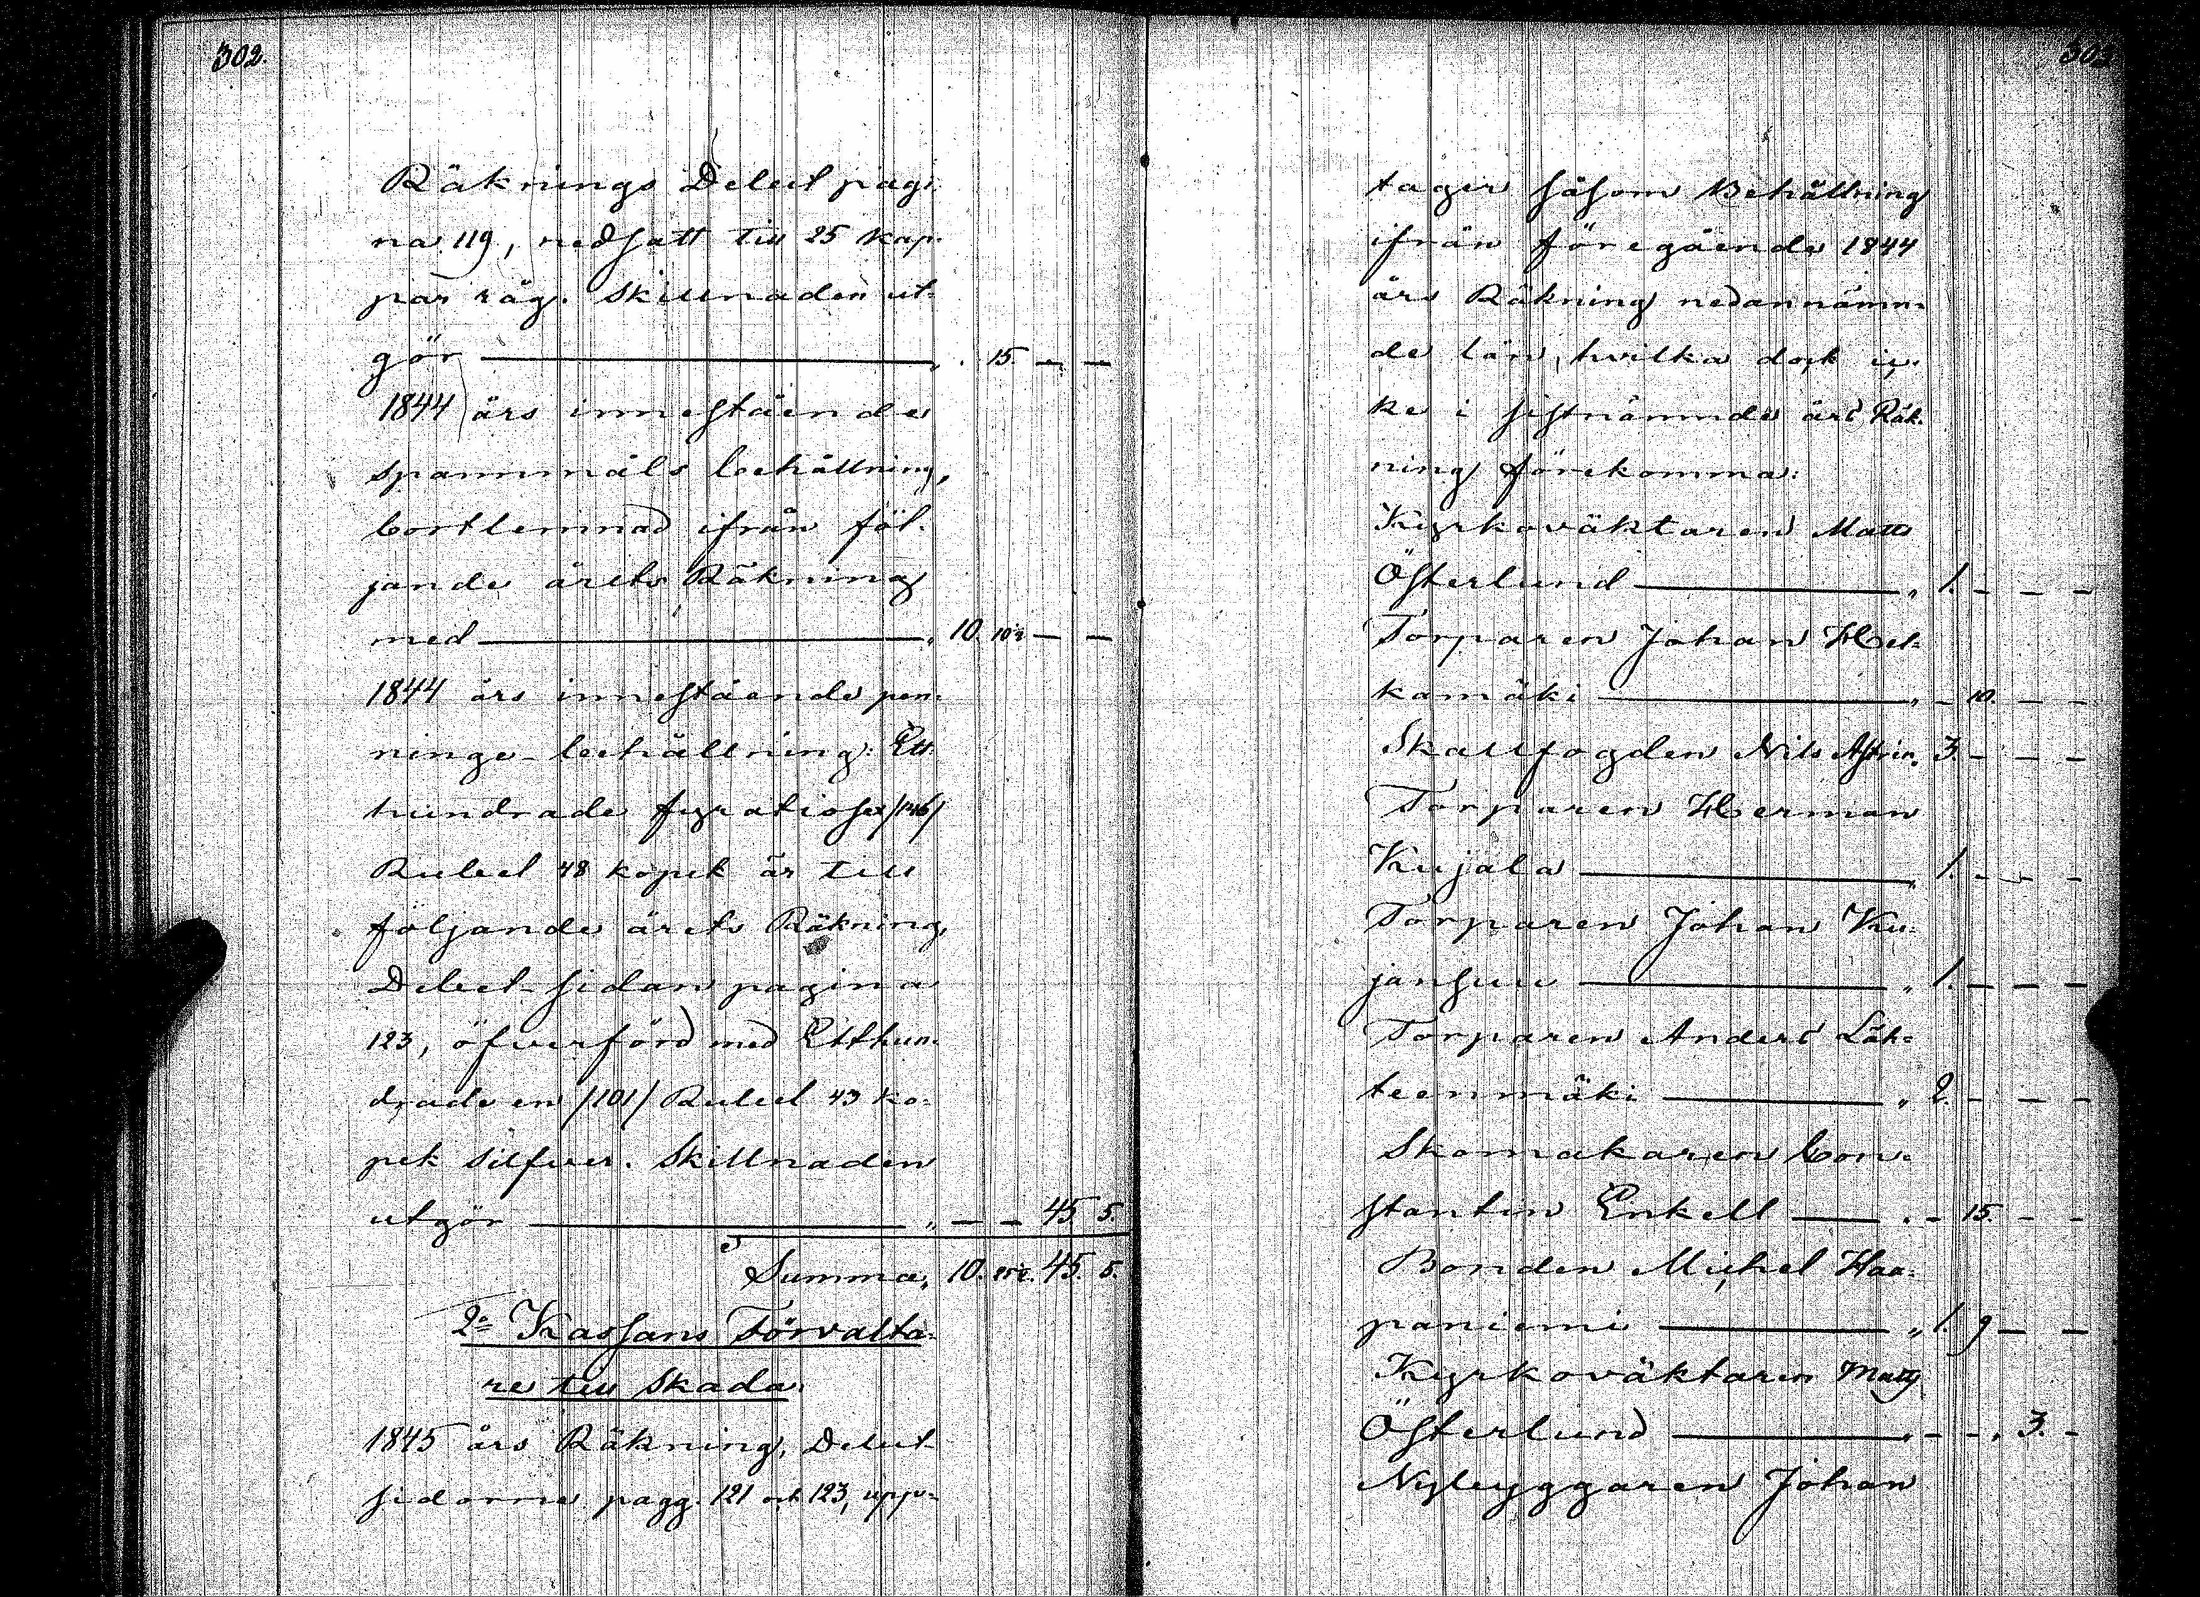 302.
Räknings Debet pagi-
na 119, nedsatt till 25 kap-
par råg. Skillnaden ut-
gör „ . 15. — —
1844 års innestående
spannmåls behållning,
bortlemnad ifrån föl-
jande årets Räkning
med „ 10. 10½ — —
1844 års innestående pen-
ninge-behållning: Ett-
hundrade fyratiosex /146/
Rubel 48 kopek är till
följande årets Räkning,
Debet-sidan pagina
123, öfverförd med Etthun-
drade en /101/ Rubel 43 ko-
pek silfver. Skillnaden
utgör „ — — 45. 5.
Summa, 10. 25½. 45. 5.
2:o Kassans Förvalta-
re till skada.
1845 års Räkning, Debet-
sidorne pagg. 121 och 123, upp-
303
tager såsom Behållning
ifrån föregående 1844
års Räkning nedannämn-
de lån, hvilka dock ic-
ke i sistnämnde års Räk-
ning förekomma:
Kyrkoväktaren Matts
Österlund „ 1. — — —
Torparen Johan Het-
kamäki „ — 10. — —
Skallfogden Nils Aströn, 3. — — —
Torparen Herman
Kujala „ 1. — — —
Torparen Johan Ku-
jansuu „ 1. — — —
Torparen Anders Läh-
teenmäki „ 2. — — —
Skomakaren Con-
stantin Enkell „ — 15. — —
Bonden Michel Haa-
paniemi „ 1. 9 — —
Kyrkoväktaren Matts
Österlund „ — — . 3. —
Nybyggaren Johan